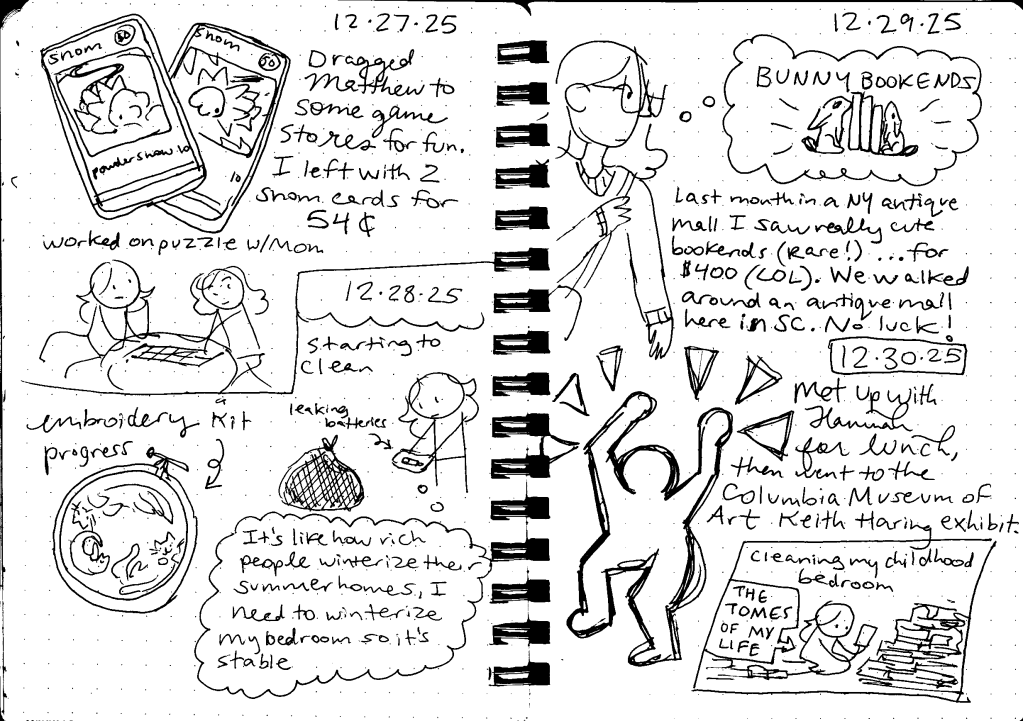 12.27.25
Snom 50
Snom 50
powder snow 10
10
Dragged
Matthew to
some game
stores for fun.
I left with 2
snom cards for
54¢
worked on puzzle w/Mom
12.28.25
starting to
clean
embroidery kit
progress
leaking
batteries
It's like how rich
people winterize their
summer homes, I
need to winterize
my bedroom so it's
stable
12.29.25
BUNNY BOOKENDS
Last month in a NY antique
mall I saw really cute
bookends (Rare!) ...for
$400 (LOL). We walked
around an antique mall
here in SC. No luck!
12.30.25
Met up with
Hannah
for lunch,
then went to the
Columbia Museum of
Art Keith Haring exhibit.
cleaning my childhood
bedroom
THE
TOMES
OF MY
LIFE